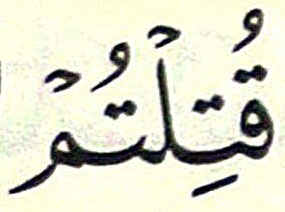 قُتِلۡتُمۡ